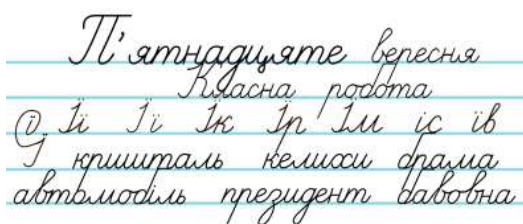 П'ятнадцяте вересня
Класна робота
ї Її Ї ї Їк Їр Їм їс їв
кришталь келихи брама
автомобіль президент бавовна